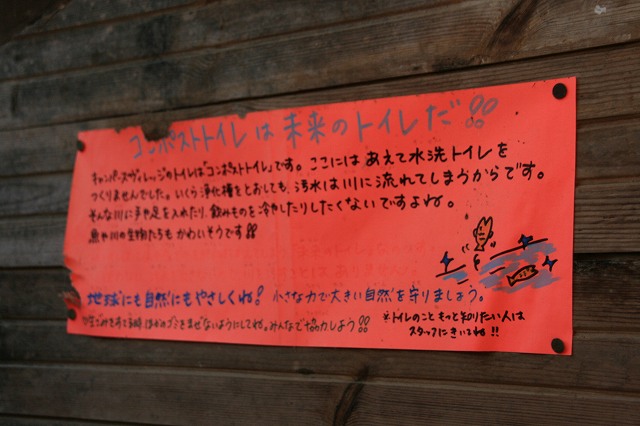 コンポストトイレは未来のトイレだ!!
キャンパーズヴィレッジのトイレは「コンポストトイレ」です。ここには あえて水洗トイレを
つくりませんでした。いくら浄化槽をとおしても、汚水は川に流れてしまうからです。
そんな川に手や足を入れたり、飲みものを冷やしたりしたくないですよね。
魚や川の生物たちも かわいそうです!!
地球にも自然にもやさしくね! 小さな力で大きい自然を守りましょう。
生ごみをすてる時 ほかのゴミをまぜないようにしてね。みんなで協力しよう!!
※トイレのこと もっと知りたい人は
スタッフにきいてね!!